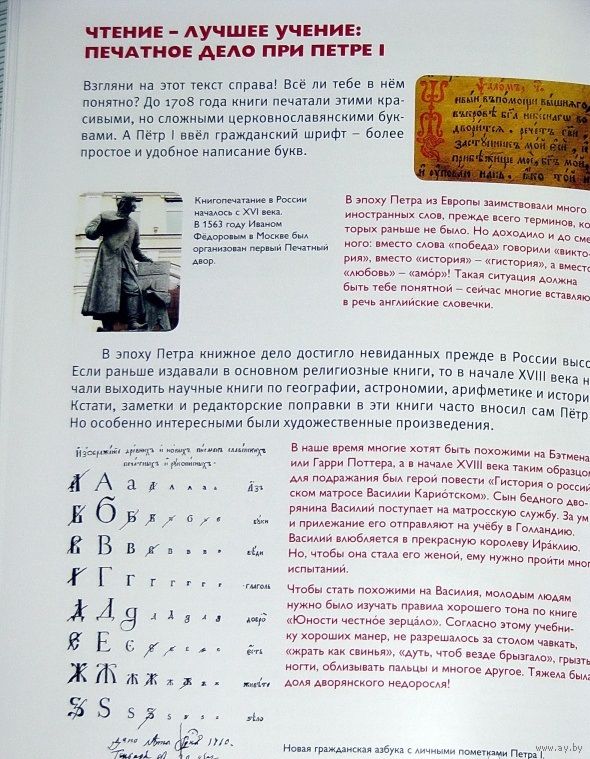 ЧТЕНИЕ – ЛУЧШЕЕ УЧЕНИЕ:
ПЕЧАТНОЕ ДЕЛО ПРИ ПЕТРЕ I
Взгляни на этот текст справа! Всё ли тебе в нём
понятно? До 1708 года книги печатали этими кра-
сивыми, но сложными церковнославянскими бук-
вами. А Пётр I ввёл гражданский шрифт – более
простое и удобное написание букв.
Книгопечатание в России
началось с XVI века.
В 1563 году Иваном
Фёдоровым в Москве был
организован первый Печатный
двор.
В эпоху Петра из Европы заимствовали много
иностранных слов, прежде всего терминов, ко-
торых раньше не было. Но доходило и до сме
ного: вместо слова «победа» говорили «викто-
рия», вместо «история» – «гистория», а вместо
«любовь» – «амо́р»! Такая ситуация должна
быть тебе понятной – сейчас многие вставляю
в речь английские словечки.
В эпоху Петра книжное дело достигло невиданных прежде в России высо
Если раньше издавали в основном религиозные книги, то в начале XVIII века н
чали выходить научные книги по географии, астрономии, арифметике и истори
Кстати, заметки и редакторские поправки в эти книги часто вносил сам Пётр
Но особенно интересными были художественные произведения.
Изображение древних и новых писмен славенских
печатных и рукописных.
А а азъ
Б буки
В в вѣди
Г г глаголь
Д д добро
Е є есть
Ж ж живѣте
Ѕ ѕ ѕѣло
В наше время многие хотят быть похожими на Бэтмена
или Гарри Поттера, а в начале XVIII века таким образцом
для подражания был герой повести «Гистория о россий
ском матросе Василии Карио́тском». Сын бедного дво-
рянина Василий поступает на матросскую службу. За ум
и прилежание его отправляют на учёбу в Голландию.
Василий влюбляется в прекрасную королеву Ира́клию.
Но, чтобы она стала его женой, ему нужно пройти мног
испытаний.
Чтобы стать похожими на Василия, молодым людям
нужно было изучать правила хорошего тона по книге
«Юности честно́е зерца́ло». Согласно этому учебни-
ку хороших манер, не разрешалось за столом чавкать,
«жрать как свинья», «дуть, чтоб везде брызгало», грызть
ногти, облизывать пальцы и многое другое. Тяжела была
доля дворянского недоросля!
Новая гражданская азбука с личными пометками Петра I.
www.ay.by